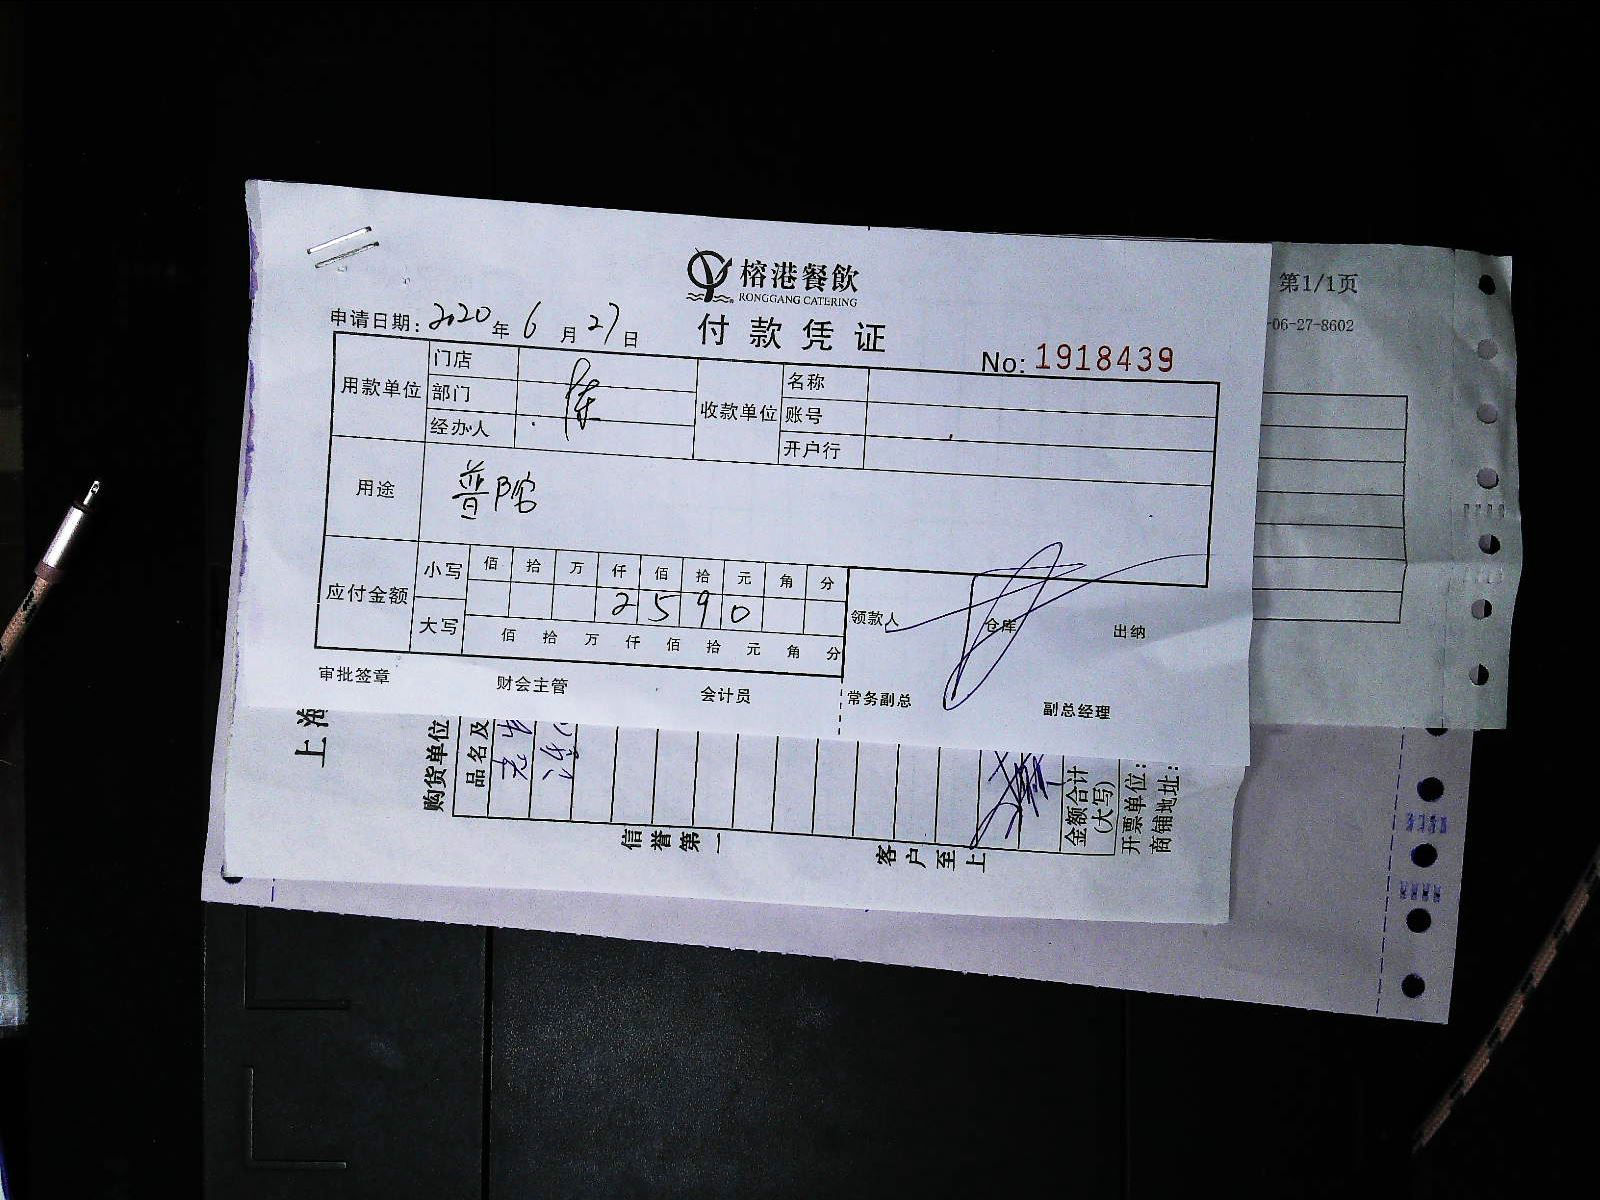 榕港餐飲
RONGGANG CATERING
付款凭证
申请日期: 2020 年 6 月 27 日
No: 1918439
用款单位 门店 收款单位 名称
部门 账号
经办人 开户行
用途 普陀
应付金额 小写 佰 拾 万 仟 佰 拾 元 角 分
2 5 9 0
大写 佰 拾 万 仟 佰 拾 元 角 分
领款人 仓库 出纳
审批签章 财会主管 会计员 常务副总 副总经理
第1/1页
-06-27-8602
上海
购货单位
品名及
信誉第一
客户至上
金额合计
(大写)
开票单位:
商铺地址: